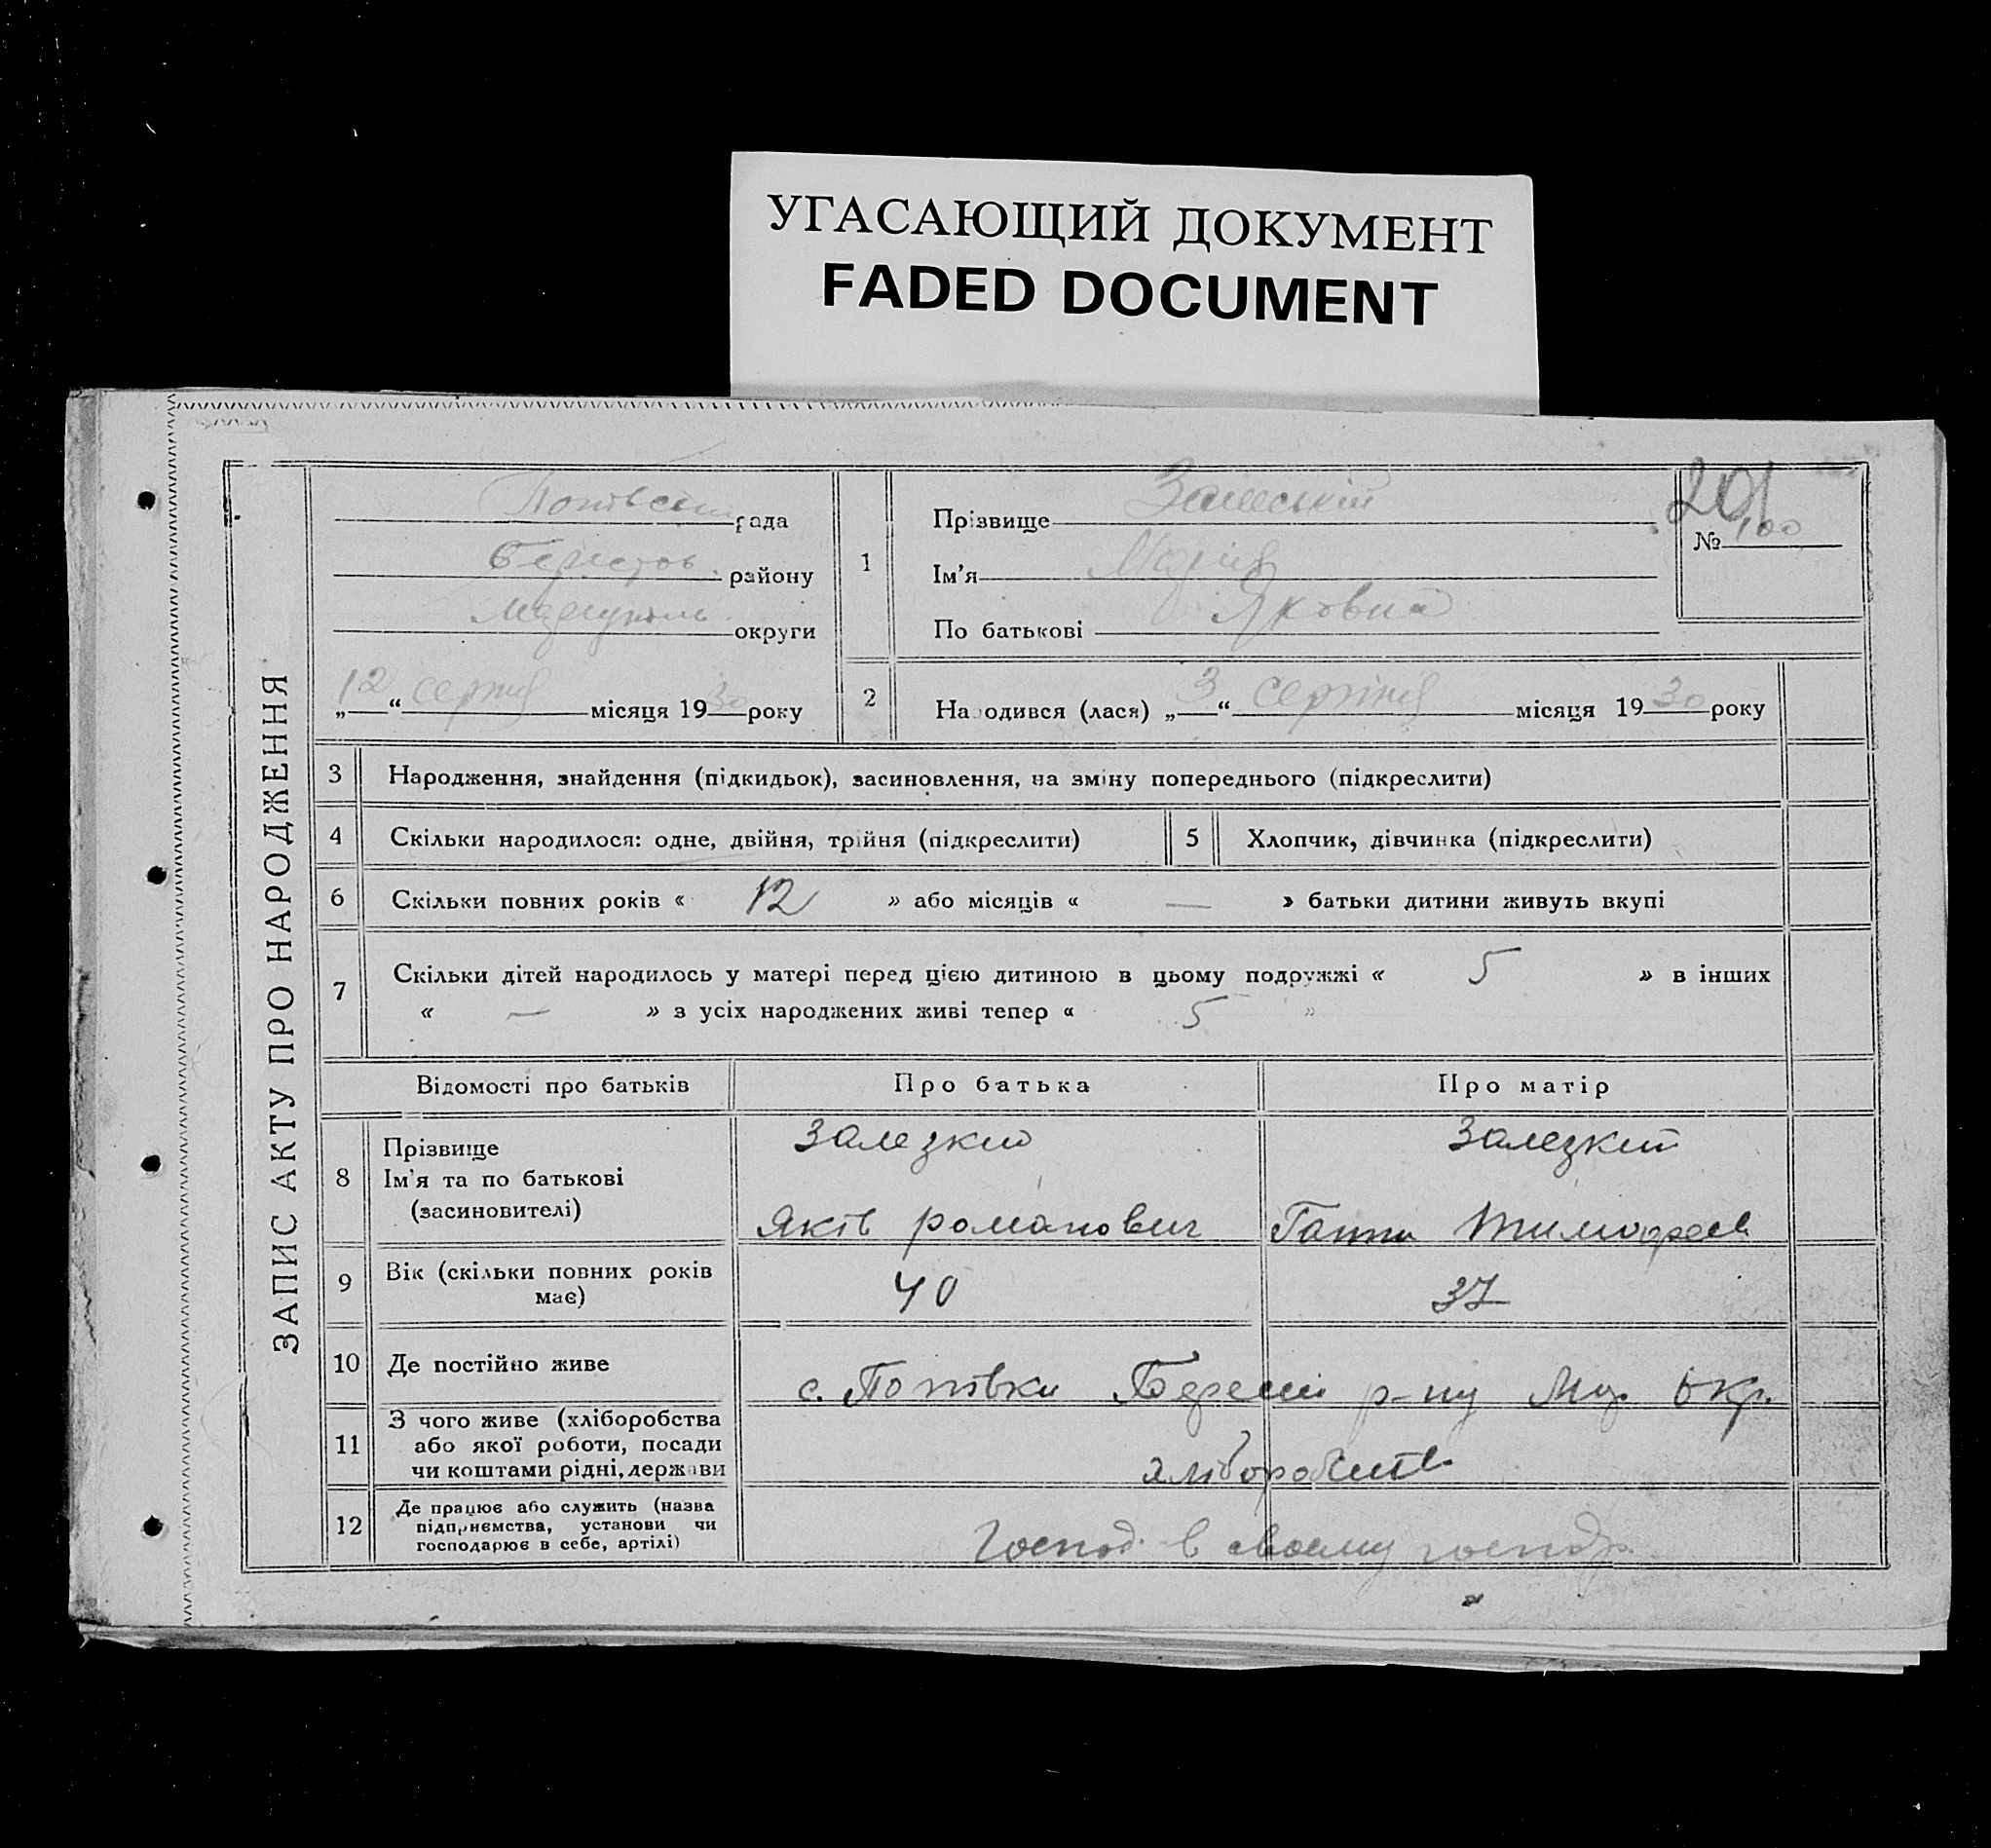 УГАСАЮЩИЙ ДОКУМЕНТ
FADED DOCUMENT
ЗАПИС АКТУ ПРО НАРОДЖЕННЯ
рада
Берестов. району
округи
„12“ серпня місяця 1930 року
1
Прізвище
Ім'я Марія
По батькові Яковна
201
№ 100
2
Народився (лася) „3“ серпня місяця 1930 року
3 Народження, знайдення (підкидьок), засиновлення, на зміну попереднього (підкреслити)
4 Скільки народилося: одне, двійня, трійня (підкреслити)
5 Хлопчик, дівчинка (підкреслити)
6 Скільки повних років « 12 » або місяців « — » батьки дитини живуть вкупі
7 Скільки дітей народилось у матері перед цією дитиною в цьому подружжі « 5 » в інших
« — » з усіх народжених живі тепер « 5 »
Відомості про батьків Про батька Про матір
8 Прізвище
Ім'я та по батькові
(засиновителі)
Залезкий
Яків романович
Залезкий
Ганна Тимофеев
9 Вік (скільки повних років
має)
40 37
10 Де постійно живе
с. Попівки р-ну окр.
11 З чого живе (хліборобства
або якої роботи, посади
чи коштами рідні, держави
хліборобств
12 Де працює або служить (назва
підприємства, установи чи
господарює в себе, артілі)
Господ. в своему господ.